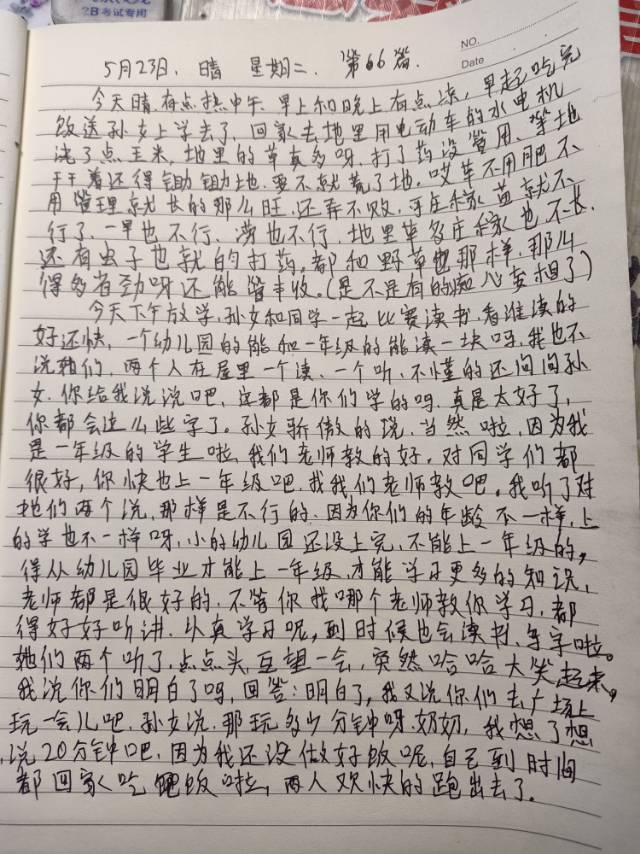 2B考试专用
NO.
Date
5月23日, 晴 星期二. 第66篇.
今天晴有点热中午. 早上和晚上有点凉, 早起吃完
饭送孙女上学去了, 回家去地里用电动车的水电机
浇了点玉米, 地里的草真多呀, 打了药没管用, 等地
干干着还得锄锄地. 要不就荒了地. 哎草不用肥不
用管理就长的那么旺, 还弄不败, 可庄稼苗就不
行了, 一旱也不行, 涝也不行. 地里草多庄稼也不长.
还有虫子也就的打药. 都和野草也那样, 那么
得多省劲呀还能管丰收. (是不是有的痴心妄想了)
今天下午放学, 孙女和同学一起比赛读书, 看谁读的
好还快, 一个幼儿园的能和一年级的能读一块吗, 我也不
说她们, 两个人在屋里一个读, 一个听, 不懂的还问问孙
女, 你给我说说吧, 这都是你们学的吗, 真是太好了,
你都会这么些字了. 孙女骄傲的说, 当然啦, 因为我
是一年级的学生啦, 我们老师教的好, 对同学们都
很好, 你快也上一年级吧, 找我们老师教吧. 我听了对
她们两个说, 那样是不行的, 因为你们的年龄不一样, 上
的学也不一样呀, 小的幼儿园还没上完, 不能上一年级的,
得从幼儿园毕业才能上一年级, 才能学习更多的知识,
老师都是很好的, 不管你找哪个老师教你学习, 都
得好好听讲. 认真学习呢, 到时候也会读书, 写字啦。
她们两个听了, 点点头, 互望一会, 突然哈哈大笑起来,
我说你们明白了吗, 回答: 明白了, 我又说你们去广场上
玩一会儿吧. 孙女说, 那玩多少分钟呀奶奶, 我想了想
说20分钟吧, 因为我还没做好饭呢, 自己到时间
都回家吃饭啦, 两人欢快的跑出去了.